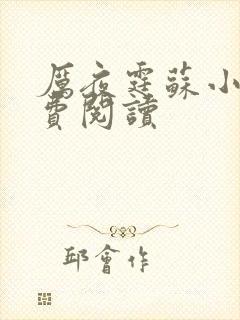 厲夜霆蘇小
費閱讀
邱會作